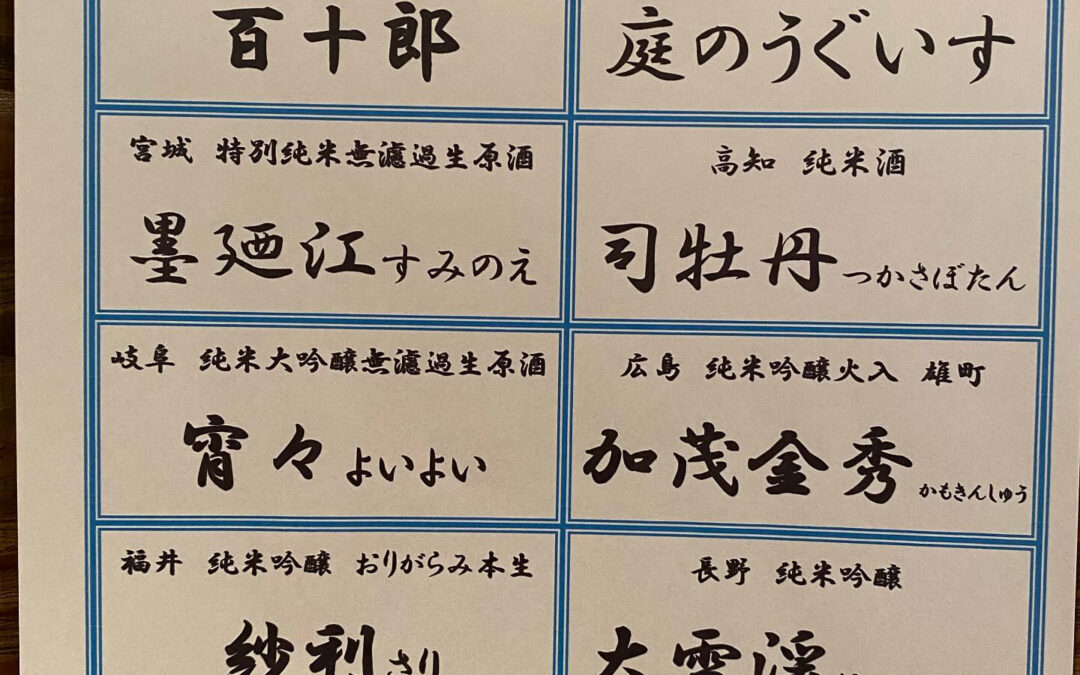 百十郎
庭のうぐいす
宮城 特別純米無濾過生原酒
墨廼江すみのえ
高知 純米酒
司牡丹つかさぼたん
岐阜 純米大吟醸無濾過生原酒
宵々よいよい
広島 純米吟醸火入 雄町
加茂金秀かもきんしゅう
福井 純米吟醸 おりがらみ本生
紗利さり
長野 純米吟醸
大雪渓